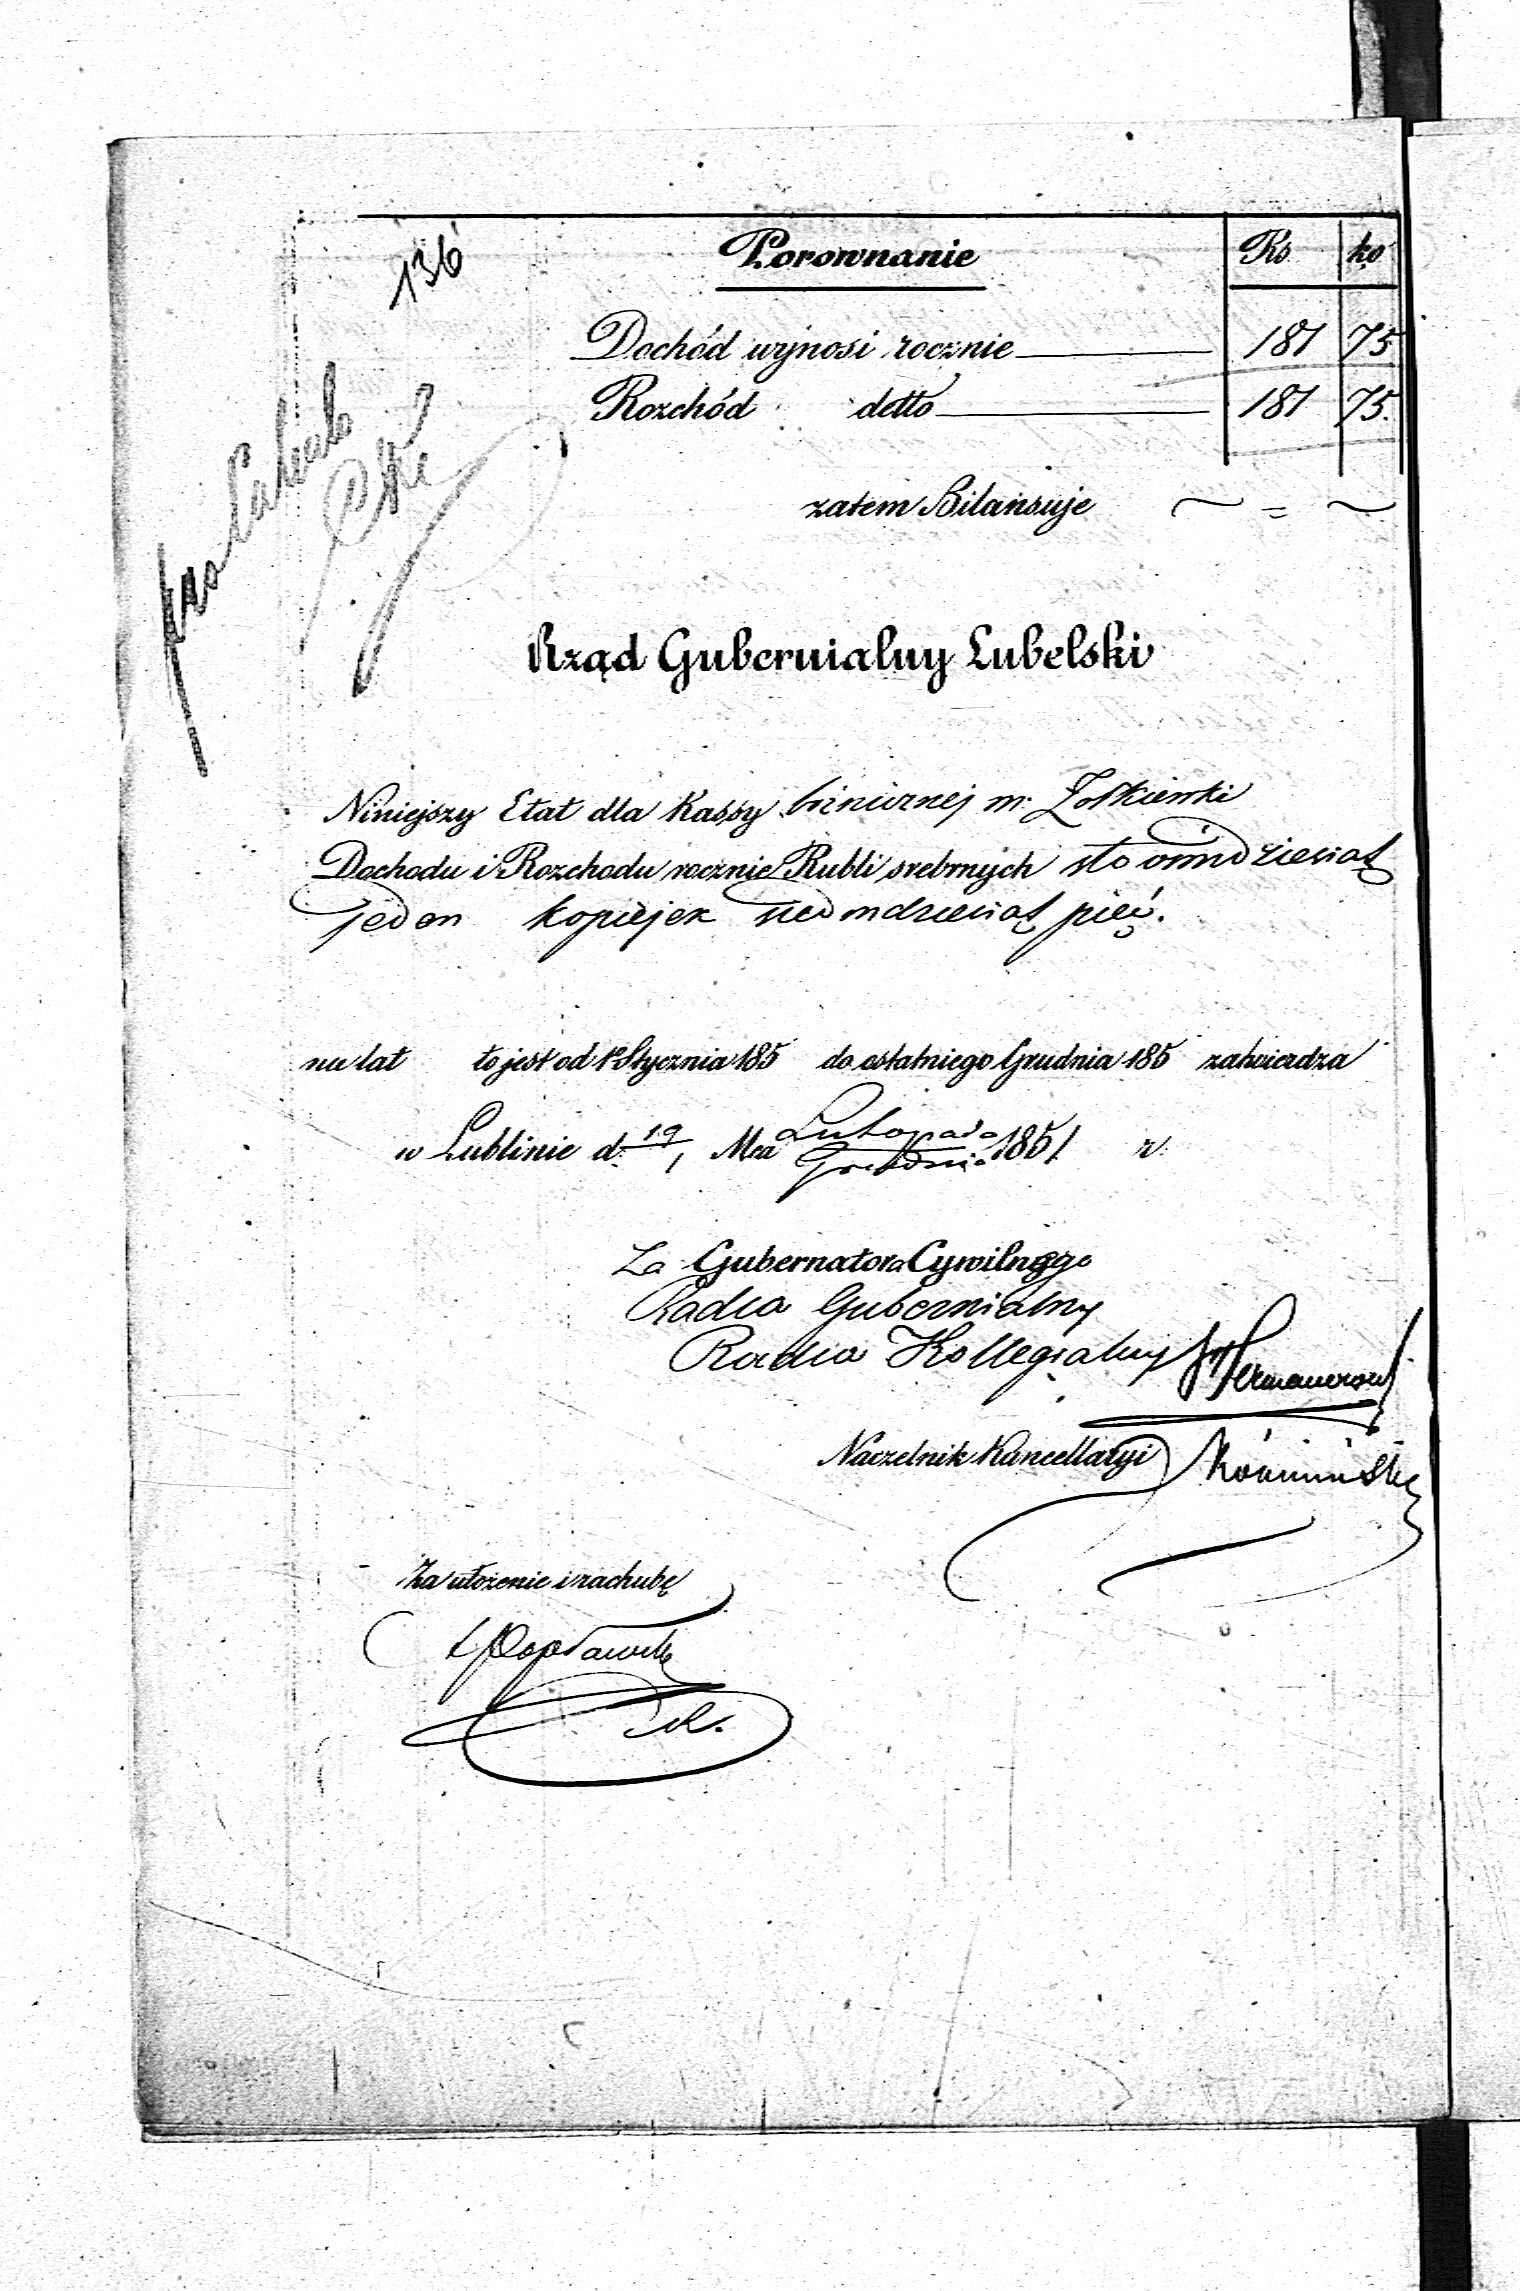 136
Porownanie Rs ko
Dochód wynosi rocznie 181 75
Rozchód detto 181 75.
zatem Bilansuje ~ = ~
Rząd Gubernialny Lubelski
Niniejszy Etat dla Kassy bóżnicznej m: Żółkiewki
Dochodu i Rozchodu rocznie Rubli srebrnych sto ośmdziesiąt
jeden kopiejek siedmdziesiąt pięć.
na lat to jest od 1º Stycznia 185 do ostatniego Grudnia 185 zatwierdza
w Lublinie d. 19/1 Mca Listopada/Grudnia 1851 r.
Za Gubernatora Cywilnego
Radca Gubernialny
Radca Kollegialny
Naczelnik Kancellaryi
Za ułożenie i rachubę